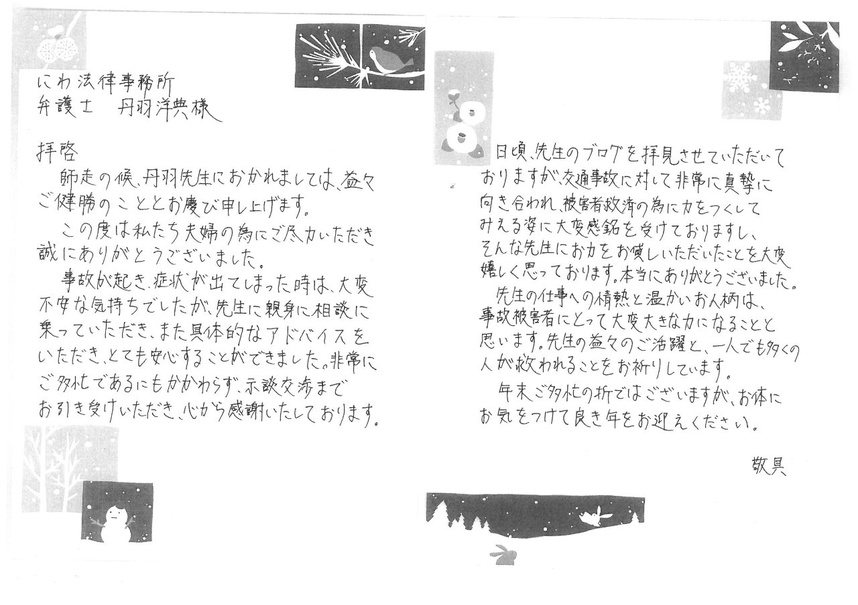 にわ法律事務所
弁護士 丹羽洋典様
拝啓
師走の候、丹羽先生におかれましては、益々
ご健勝のこととお慶び申し上げます。
この度は私たち夫婦の為にご尽力いただき
誠にありがとうございました。
事故が起き、症状が出てしまった時は、大変
不安な気持ちでしたが、先生に親身に相談に
乗っていただき、また具体的なアドバイスを
いただき、とても安心することができました。非常に
ご多忙であるにもかかわらず、示談交渉まで
お引き受けいただき、心から感謝いたしております。
日頃、先生のブログを拝見させていただいて
おりますが、交通事故に対して非常に真摯に
向き合われ、被害者救済の為に力をつくして
みえる姿に大変感銘を受けておりますし、
そんな先生にお力をお貸しいただいたことを大変
嬉しく思っております。本当にありがとうございました。
先生の仕事への情熱と温かいお人柄は、
事故被害者にとって大変大きな力になることと
思います。先生の益々のご活躍と、一人でも多くの
人が救われることをお祈りしています。
年末ご多忙の折ではございますが、お体に
お気をつけて良き年をお迎えください。
敬具